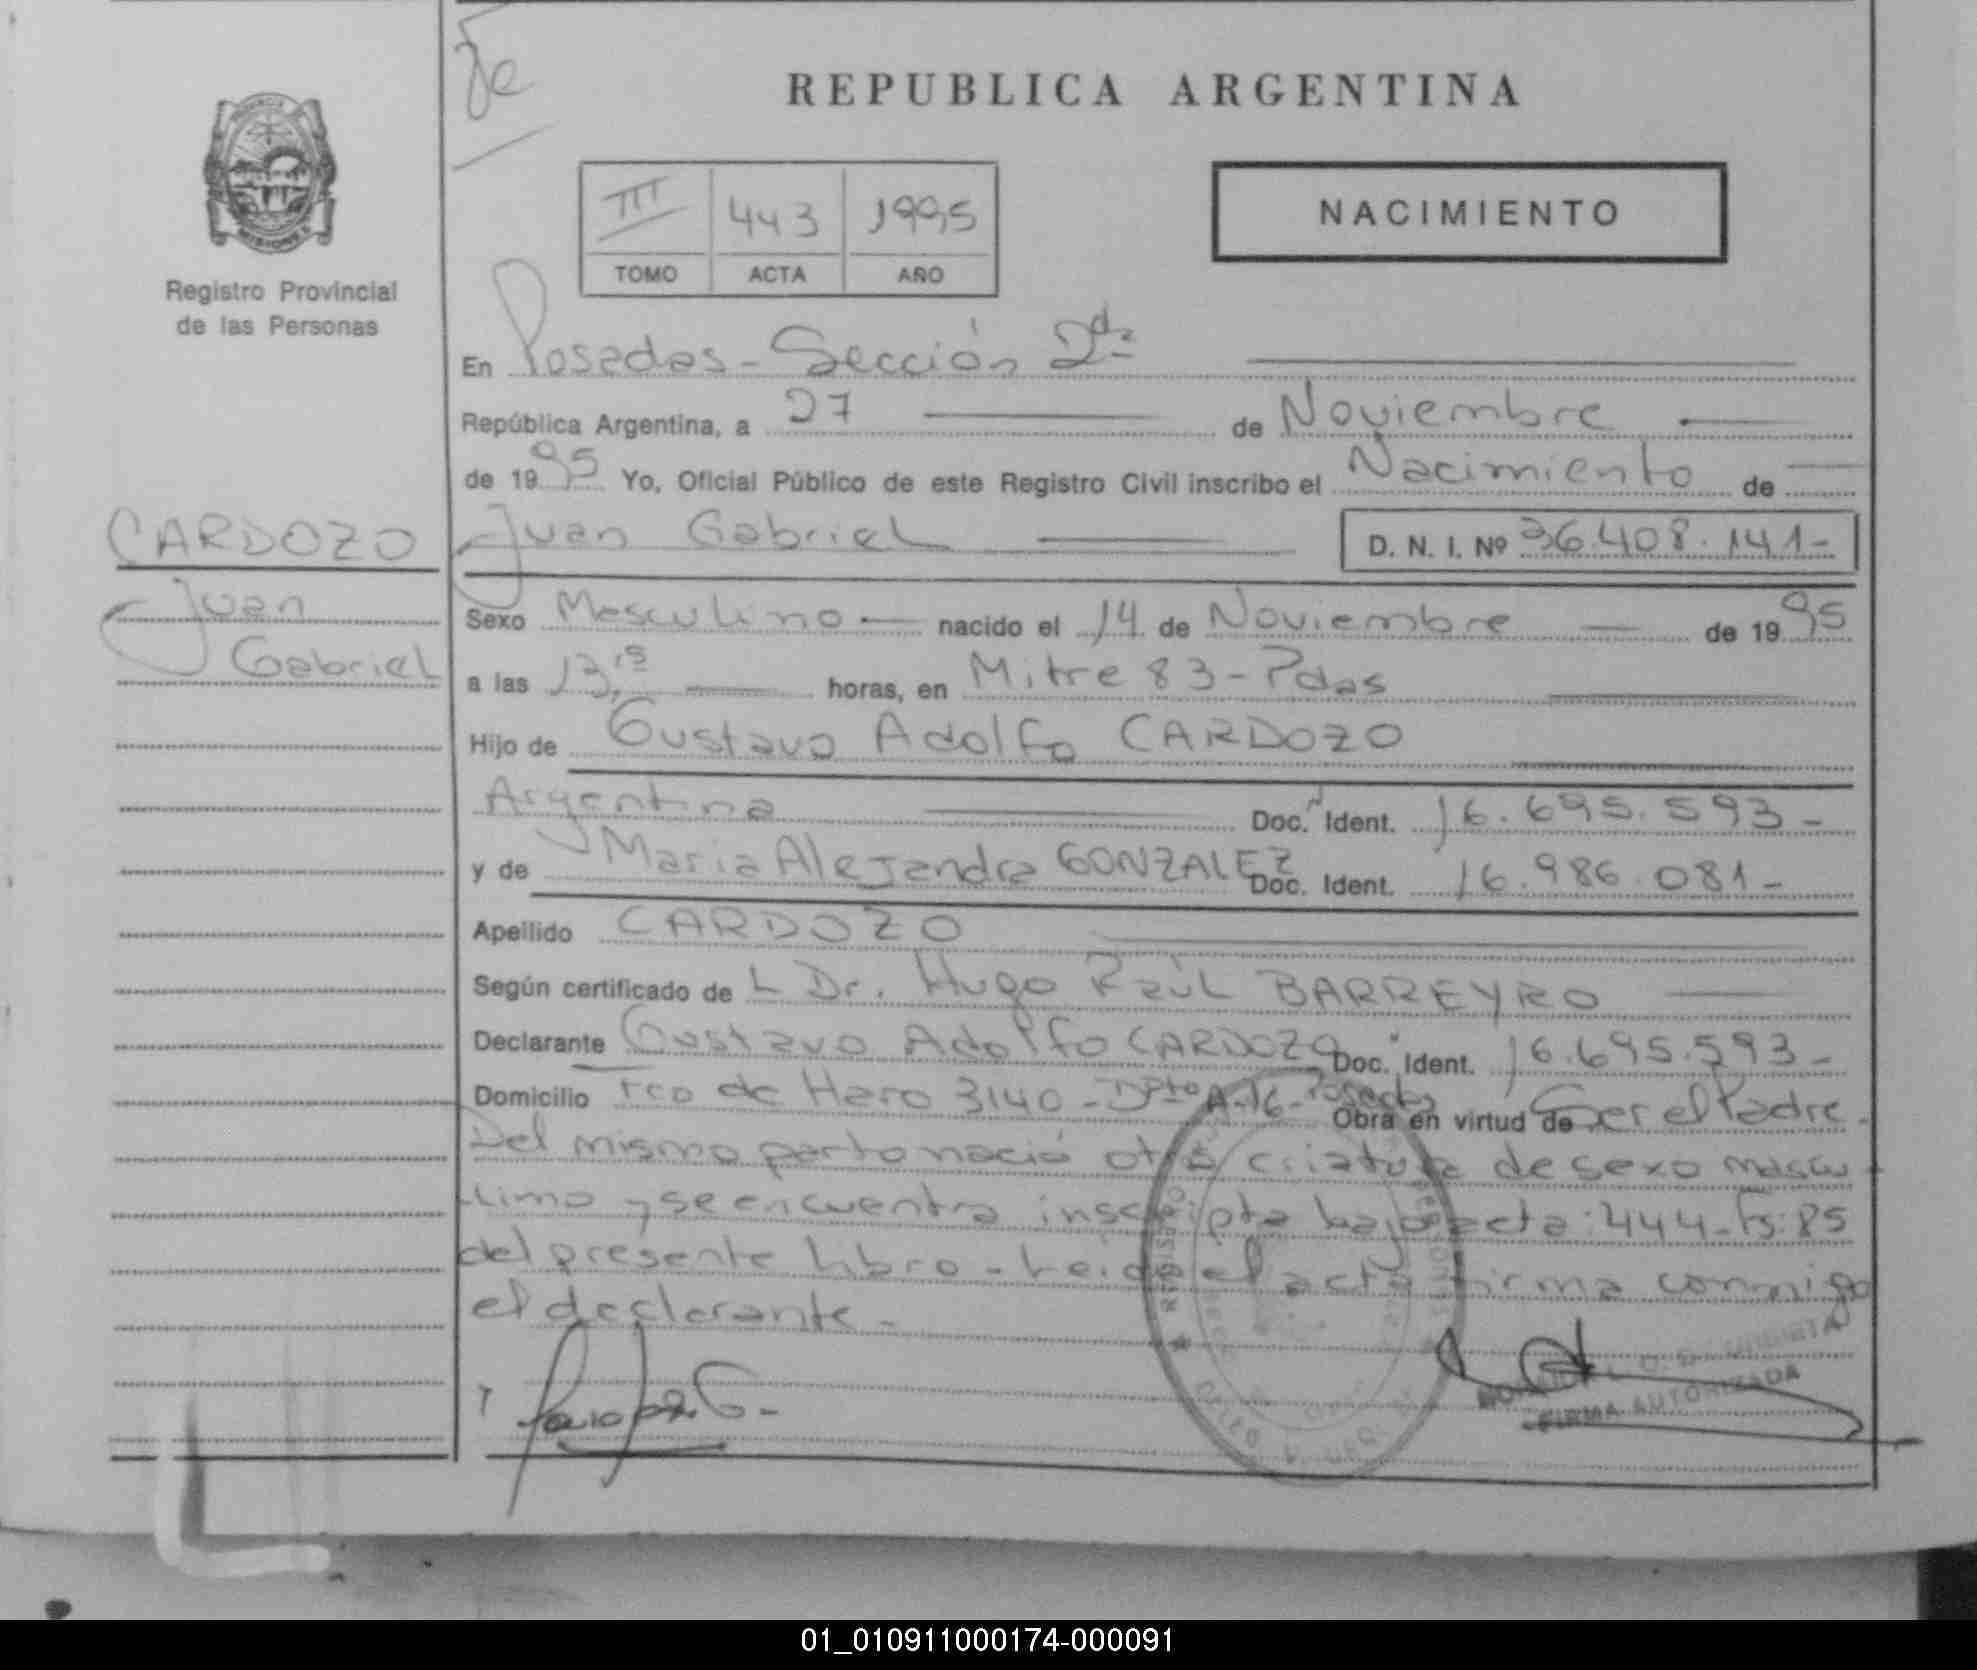 de
REPUBLICA ARGENTINA
MISIONES
Registro Provincial
de las Personas
III 443 1995
TOMO ACTA AÑO
NACIMIENTO
En Posadas - Sección 2da
República Argentina, a 27 de Noviembre
de 1995 Yo, Oficial Público de este Registro Civil inscribo el Nacimiento de
Juan Gabriel D. N. I. Nº 36.408.141-
CARDOZO
Juan
Gabriel
Sexo Masculino nacido el 14 de Noviembre de 1995
a las 13,15 horas, en Mitre 83 - Pdas
Hijo de Gustavo Adolfo CARDOZO
Argentina Doc. Ident. 16.695.593-
y de Maria Alejandra GONZALEZ Doc. Ident. 16.986.081-
Apellido CARDOZO
Según certificado de L Dr. Hugo Raúl BARREYRO
Declarante Gustavo Adolfo CARDOZO Doc. Ident. 16.695.593-
Domicilio Fco de Haro 3140 - Dpto A-16 - Posadas Obra en virtud de Ser el Padre.
Del mismo parto nació otra criatura de sexo mascu
lino y se encuentra inscripta bajo acta: 444 - Fs: 85
del presente libro - Leida el acta firma conmigo
el declarante -
FIRMA AUTORIZADA
01_010911000174-000091